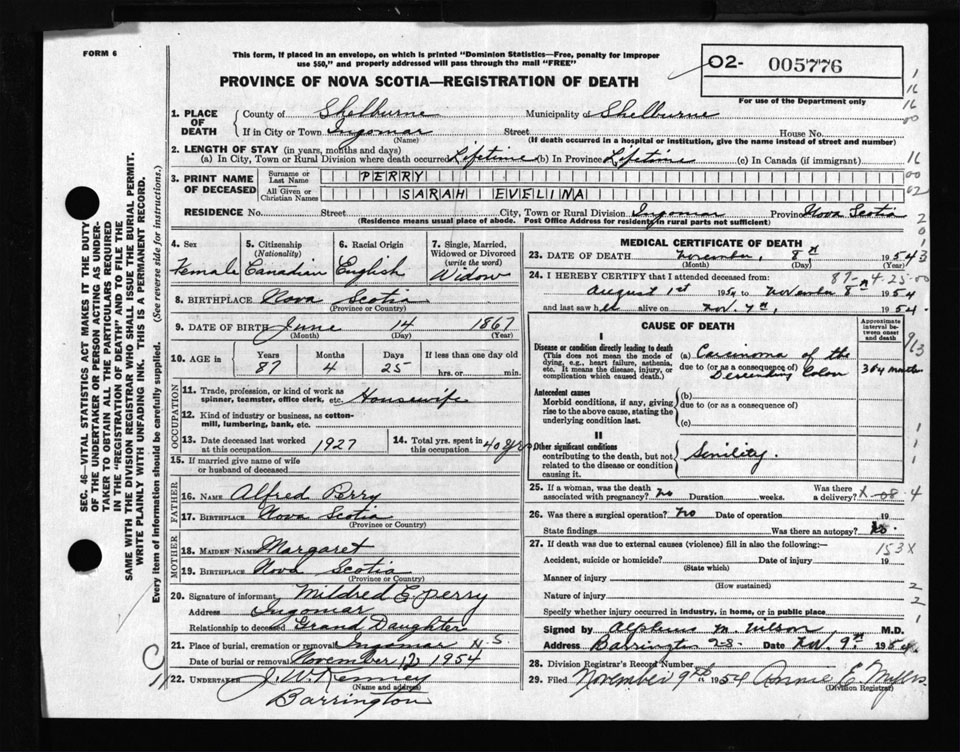 FORM 6
This form, if placed in an envelope, on which is printed "Dominion Statistics—Free, penalty for improper
use $50," and properly addressed will pass through the mail "FREE"
PROVINCE OF NOVA SCOTIA—REGISTRATION OF DEATH
O2- 005776
For use of the Department only
1. PLACE OF DEATH
County of Shelburne Municipality of Shelburne
If in City or Town Ingomar Street House No.
(Name) (If death occurred in a hospital or institution, give the name instead of street and number)
2. LENGTH OF STAY (in years, months and days)
(a) In City, Town or Rural Division where death occurred Lifetime (b) In Province Lifetime (c) In Canada (if immigrant)
3. PRINT NAME OF DECEASED
Surname or Last Name PERRY
All Given or Christian Names SARAH EVELINA
RESIDENCE No. Street City, Town or Rural Division Ingomar Province Nova Scotia
(Residence means usual place of abode. Post Office Address for residents in rural parts not sufficient)
4. Sex
Female
5. Citizenship
(Nationality)
Canadian
6. Racial Origin
English
7. Single, Married,
Widowed or Divorced
(write the word)
Widow
8. BIRTHPLACE Nova Scotia
(Province or Country)
9. DATE OF BIRTH June 14 1867
(Month) (Day) (Year)
10. AGE in
Years Months Days If less than one day old
87 4 25 hrs. or min.
OCCUPATION
11. Trade, profession, or kind of work as
spinner, teamster, office clerk, etc. Housewife
12. Kind of industry or business, as cotton-
mill, lumbering, bank, etc.
13. Date deceased last worked
at this occupation 1927
14. Total yrs. spent in
this occupation 40 yrs
15. If married give name of wife
or husband of deceased
FATHER
16. NAME Alfred Perry
17. BIRTHPLACE Nova Scotia
(Province or Country)
MOTHER
18. MAIDEN NAME Margaret
19. BIRTHPLACE Nova Scotia
(Province or Country)
20. Signature of informant Mildred E. Perry
Address Ingomar
Relationship to deceased Grand Daughter
21. Place of burial, cremation or removal Ingomar N.S.
Date of burial or removal November 1954
22. UNDERTAKER J. W. Kenney
(Name and address)
Barrington
MEDICAL CERTIFICATE OF DEATH
23. DATE OF DEATH November, 8th 1954
(Month) (Day) (Year)
87-4-25-00
24. I HEREBY CERTIFY that I attended deceased from:
August 1st 1954 to November 8th 1954
and last saw her alive on Nov. 7th, 1954.
CAUSE OF DEATH
Approximate
interval be-
tween onset
and death
I
Disease or condition directly leading to death
(This does not mean the mode of
dying, e.g., heart failure, asthenia,
etc. It means the disease, injury, or
complication which caused death.)
(a) Carcinoma of the
due to (or as a consequence of)
Descending Colon
3 or 4 months
Antecedent causes
Morbid conditions, if any, giving
rise to the above cause, stating the
underlying condition last.
(b)
due to (or as a consequence of)
(c)
II
Other significant conditions
contributing to the death, but not
related to the disease or condition
causing it.
Sinility.
25. If a woman, was the death
associated with pregnancy? No Duration weeks. Was there a delivery?
26. Was there a surgical operation? No Date of operation 19
State findings Was there an autopsy?
27. If death was due to external causes (violence) fill in also the following:—
153X
Accident, suicide or homicide? Date of injury 19
(State which)
Manner of injury
(How sustained)
Nature of injury
Specify whether injury occurred in industry, in home, or in public place
Signed by Alphius M. Wilson M.D.
Address Barrington Date Nov. 9th 1954
28. Division Registrar's Record Number
29. Filed November 9th 1954 Annie E. Myers
(Division Registrar)
SEC. 46—VITAL STATISTICS ACT MAKES IT THE DUTY
OF THE UNDERTAKER OR PERSON ACTING AS UNDER-
TAKER TO OBTAIN ALL THE PARTICULARS REQUIRED
IN THE "REGISTRATION OF DEATH" AND TO FILE THE
SAME WITH THE DIVISION REGISTRAR WHO SHALL ISSUE THE BURIAL PERMIT.
WRITE PLAINLY WITH UNFADING INK. THIS IS A PERMANENT RECORD.
Every item of information should be carefully supplied. (See reverse side for instructions.)